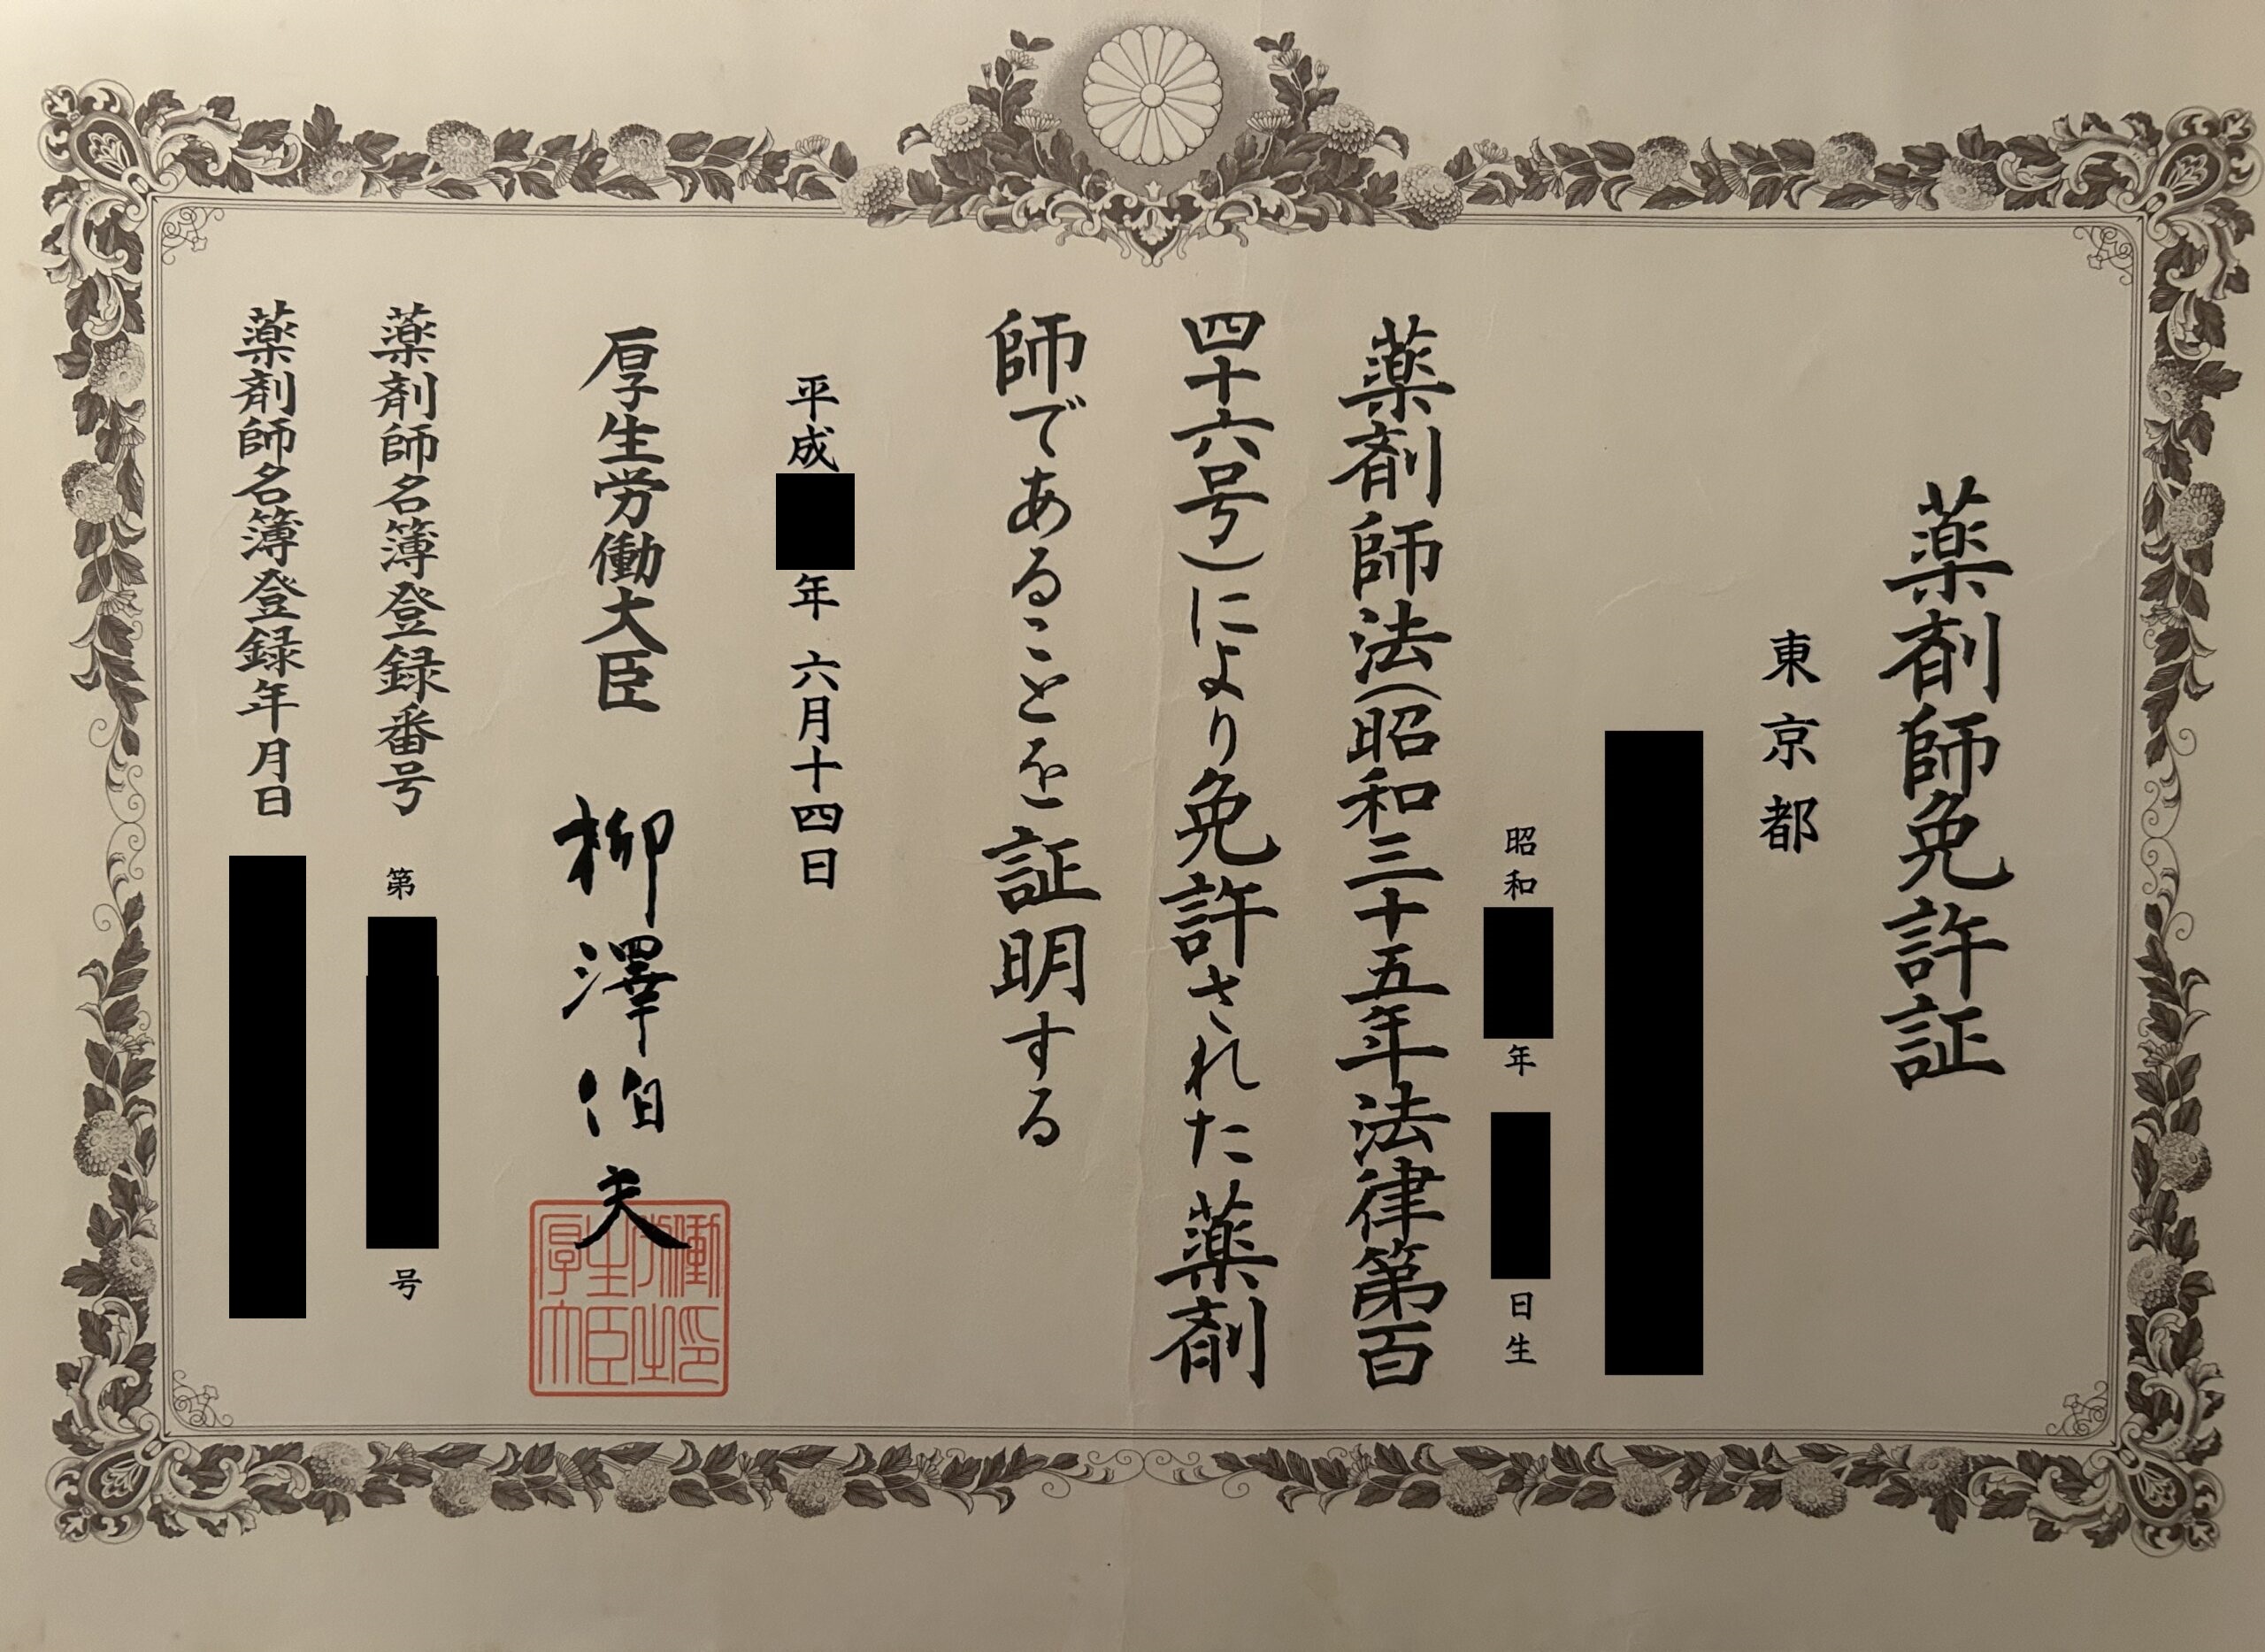 薬剤師免許証
東京都
昭和 年 日生
薬剤師法(昭和三十五年法律第百
四十六号)により免許された薬剤
師であることを証明する
平成 年 六月十四日
厚生労働大臣 柳澤伯夫
厚生労働大臣之印
薬剤師名簿登録番号 第 号
薬剤師名簿登録年月日